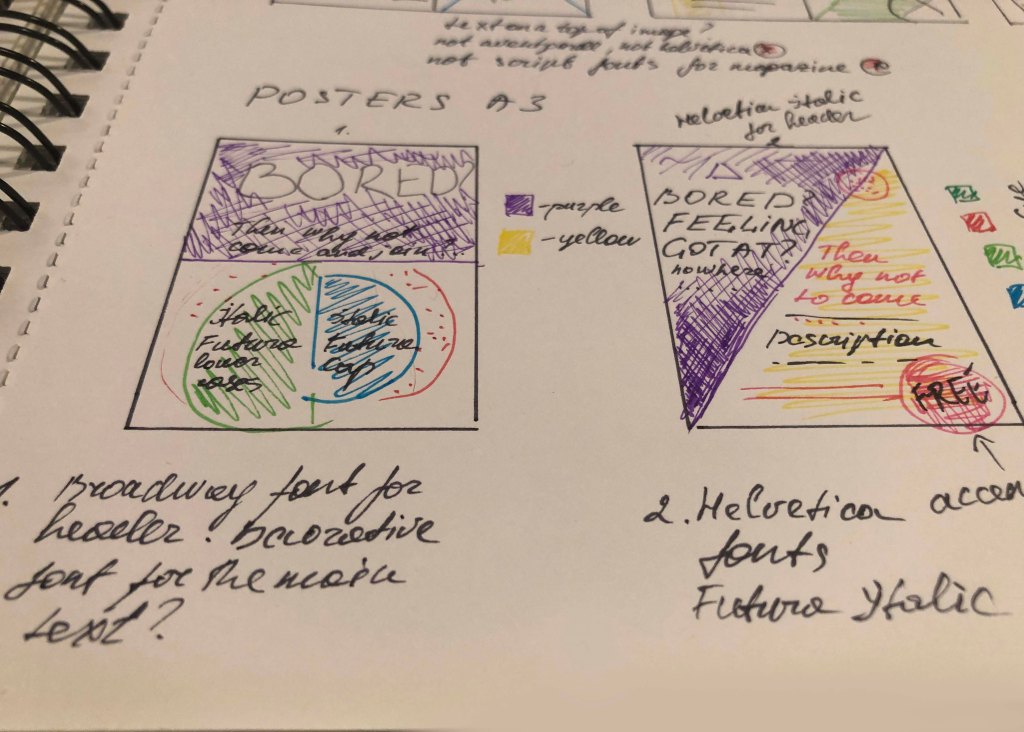 text on a top of image?
not avantgarde, not helvetica
not script fonts for magazine
POSTERS A3
1.
BORED?
Then why not
come and join?
Italic
Futura
lower
cases
italic
Futura
Cap
-purple
-yellow
Helvetica italic
for header
2
BORED?
FEELING
GOT AT?
nowhere
Then
why not
to come
Description
FREE
1. Broadway font for
header. Decorative
font for the main
text?
2. Helvetica
fonts
Futura Italic